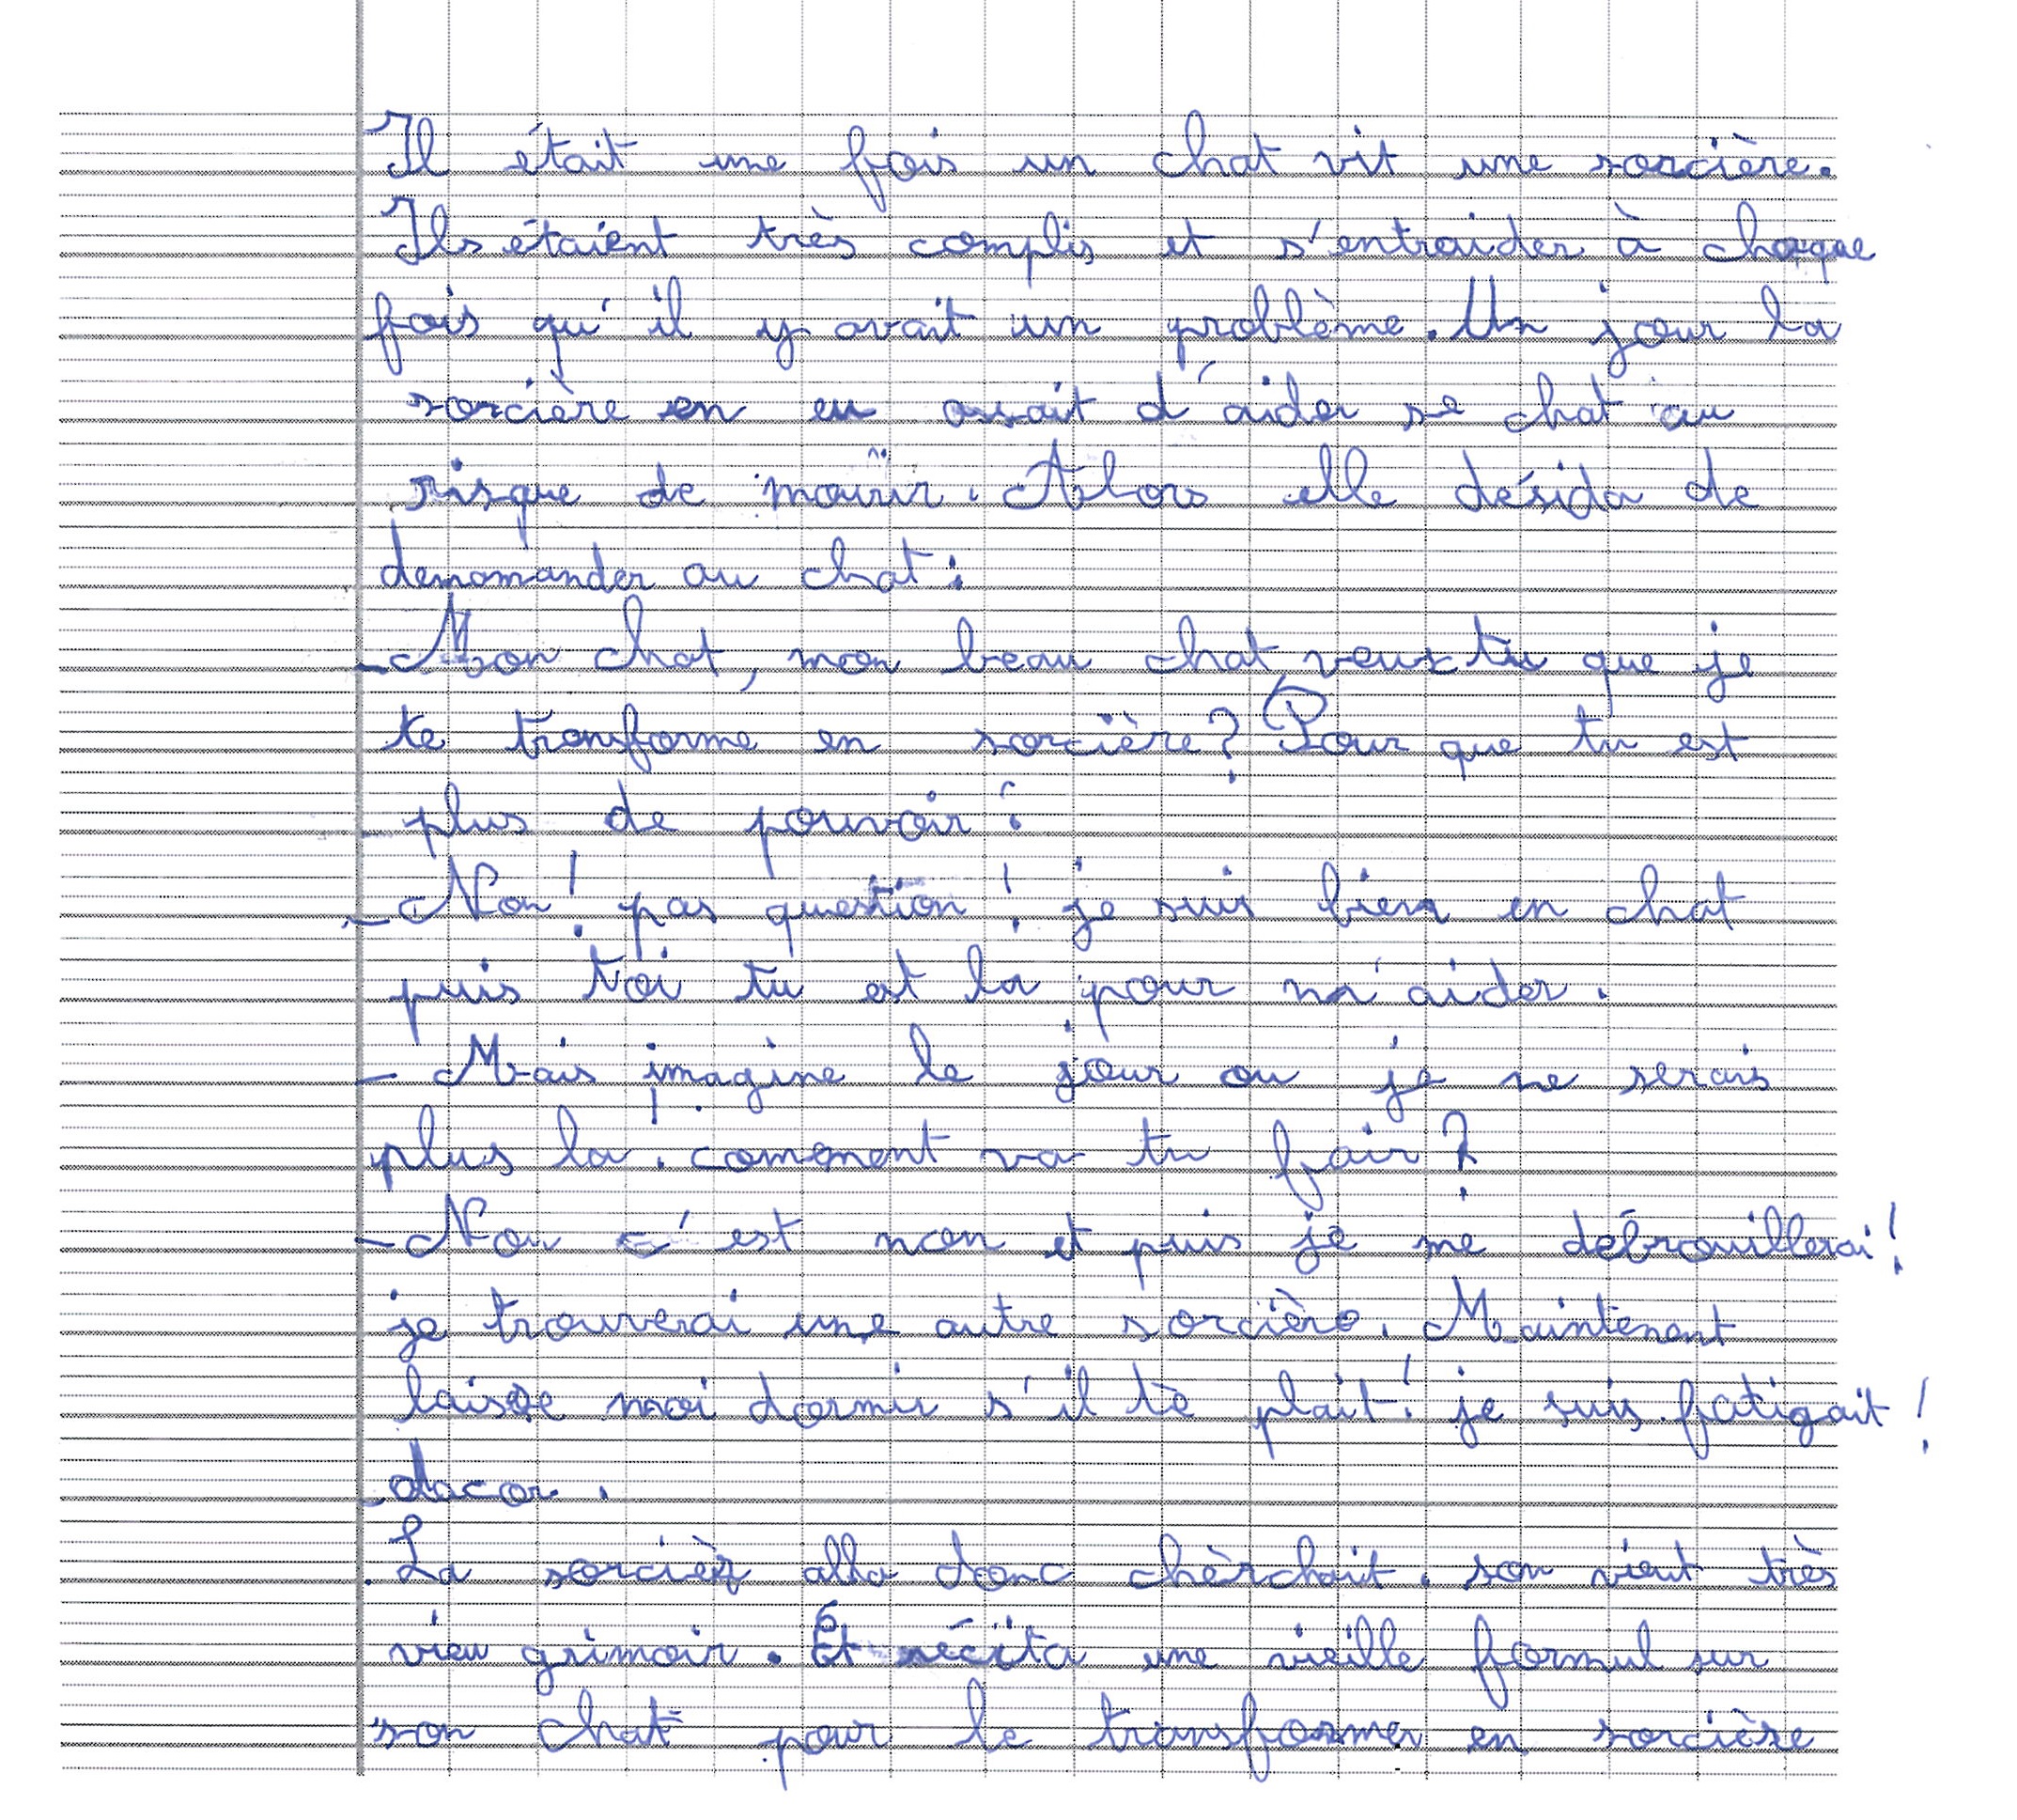 Il était une fois un chat vit une sorcière.
Ils étaient très complis et s'entraider à chaque
fois qu'il y avait un problème. Un jour la
sorcière en eu assait d'aider se chat au
risque de mourir. Alors elle désida de
demomander au chat :
- Mon chat, mon beau chat veux tu que je
te transforme en sorcière ? Pour que tu est
plus de pouvoir ?
- Non ! pas question ! je suis bien en chat
puis toi tu est la pour m'aider.
- Mais imagine le jour ou je ne serais
plus la. comment va tu fair ?
- Non c'est non et puis je me débrouillerai !
je trouverai une autre sorcière. Maintenant
laisse moi dormir s'il te plait ! je suis fatigait !
- dacor.
La sorcièr alla donc chèrchait. son vieut très
vieu grimoir. Et récita une vieille formul sur
son chat pour le transformer en sorcière